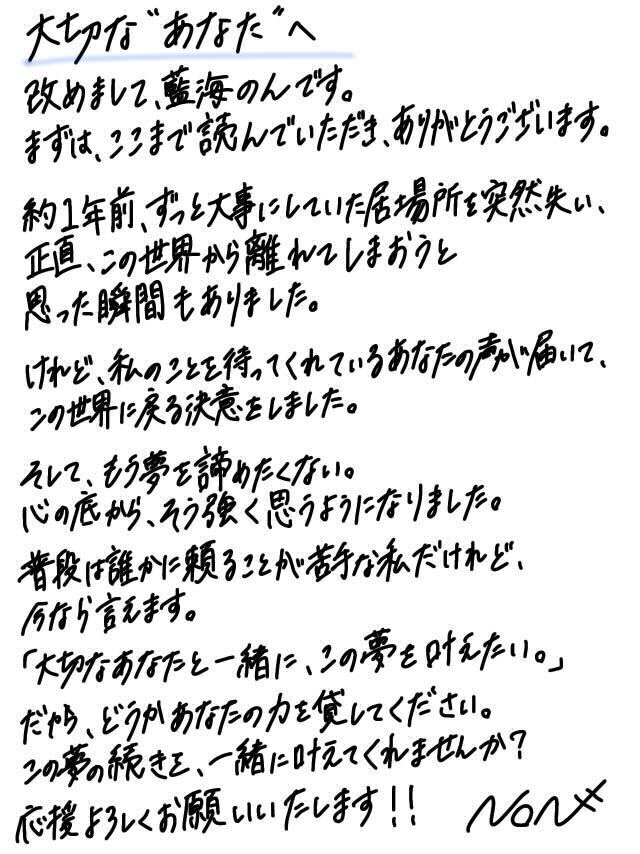 大切な“あなた”へ
改めまして、藍海のんです。
まずは、ここまで読んでいただき、ありがとうございます。
約1年前、ずっと大事にしていた居場所を突然失い、
正直、この世界から離れてしまおうと
思った瞬間もありました。
けれど、私のことを待ってくれているあなたの声が届いて、
この世界に戻る決意をしました。
そして、もう夢を諦めたくない。
心の底から、そう強く思うようになりました。
普段は誰かに頼ることが苦手な私だけれど、
今なら言えます。
「大切なあなたと一緒に、この夢を叶えたい。」
だから、どうかあなたの力を貸してください。
この夢の続きを、一緒に叶えてくれませんか?
応援よろしくお願いいたします!!
NoN